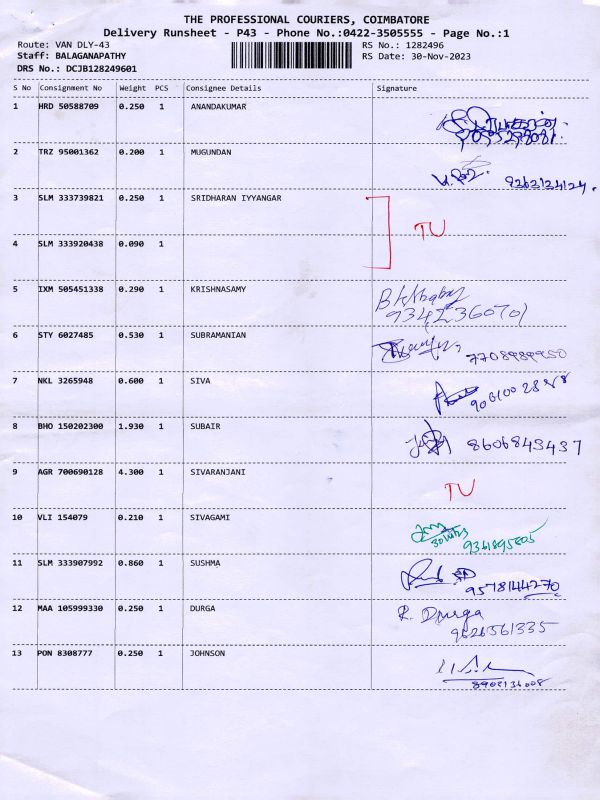 THE PROFESSIONAL COURIERS, COIMBATORE
Delivery Runsheet - P43 - Phone No.:0422-3505555 - Page No.:1
Route: VAN DLY-43 RS No.: 1282496
Staff: BALAGANAPATHY RS Date: 30-Nov-2023
DRS No.: DCJB128249601
S No Consignment No Weight PCS Consignee Details Signature
1 HRD 50588709 0.250 1 ANANDAKUMAR
2 TRZ 95001362 0.200 1 MUGUNDAN
9262124124.
3 SLM 333739821 0.250 1 SRIDHARAN IYYANGAR
TU
4 SLM 333920438 0.090 1
5 IXM 505451338 0.290 1 KRISHNASAMY
9342360701
6 STY 6027485 0.530 1 SUBRAMANIAN
7708989950
7 NKL 3265948 0.600 1 SIVA
8 BHO 150202300 1.930 1 SUBAIR
8606843437
9 AGR 700690128 4.300 1 SIVARANJANI
TU
10 VLI 154079 0.210 1 SIVAGAMI
9361895805
11 SLM 333907992 0.860 1 SUSHMA
9578144270
12 MAA 105999330 0.250 1 DURGA
R. Durga
9626561335
13 PON 8308777 0.250 1 JOHNSON
8902136008